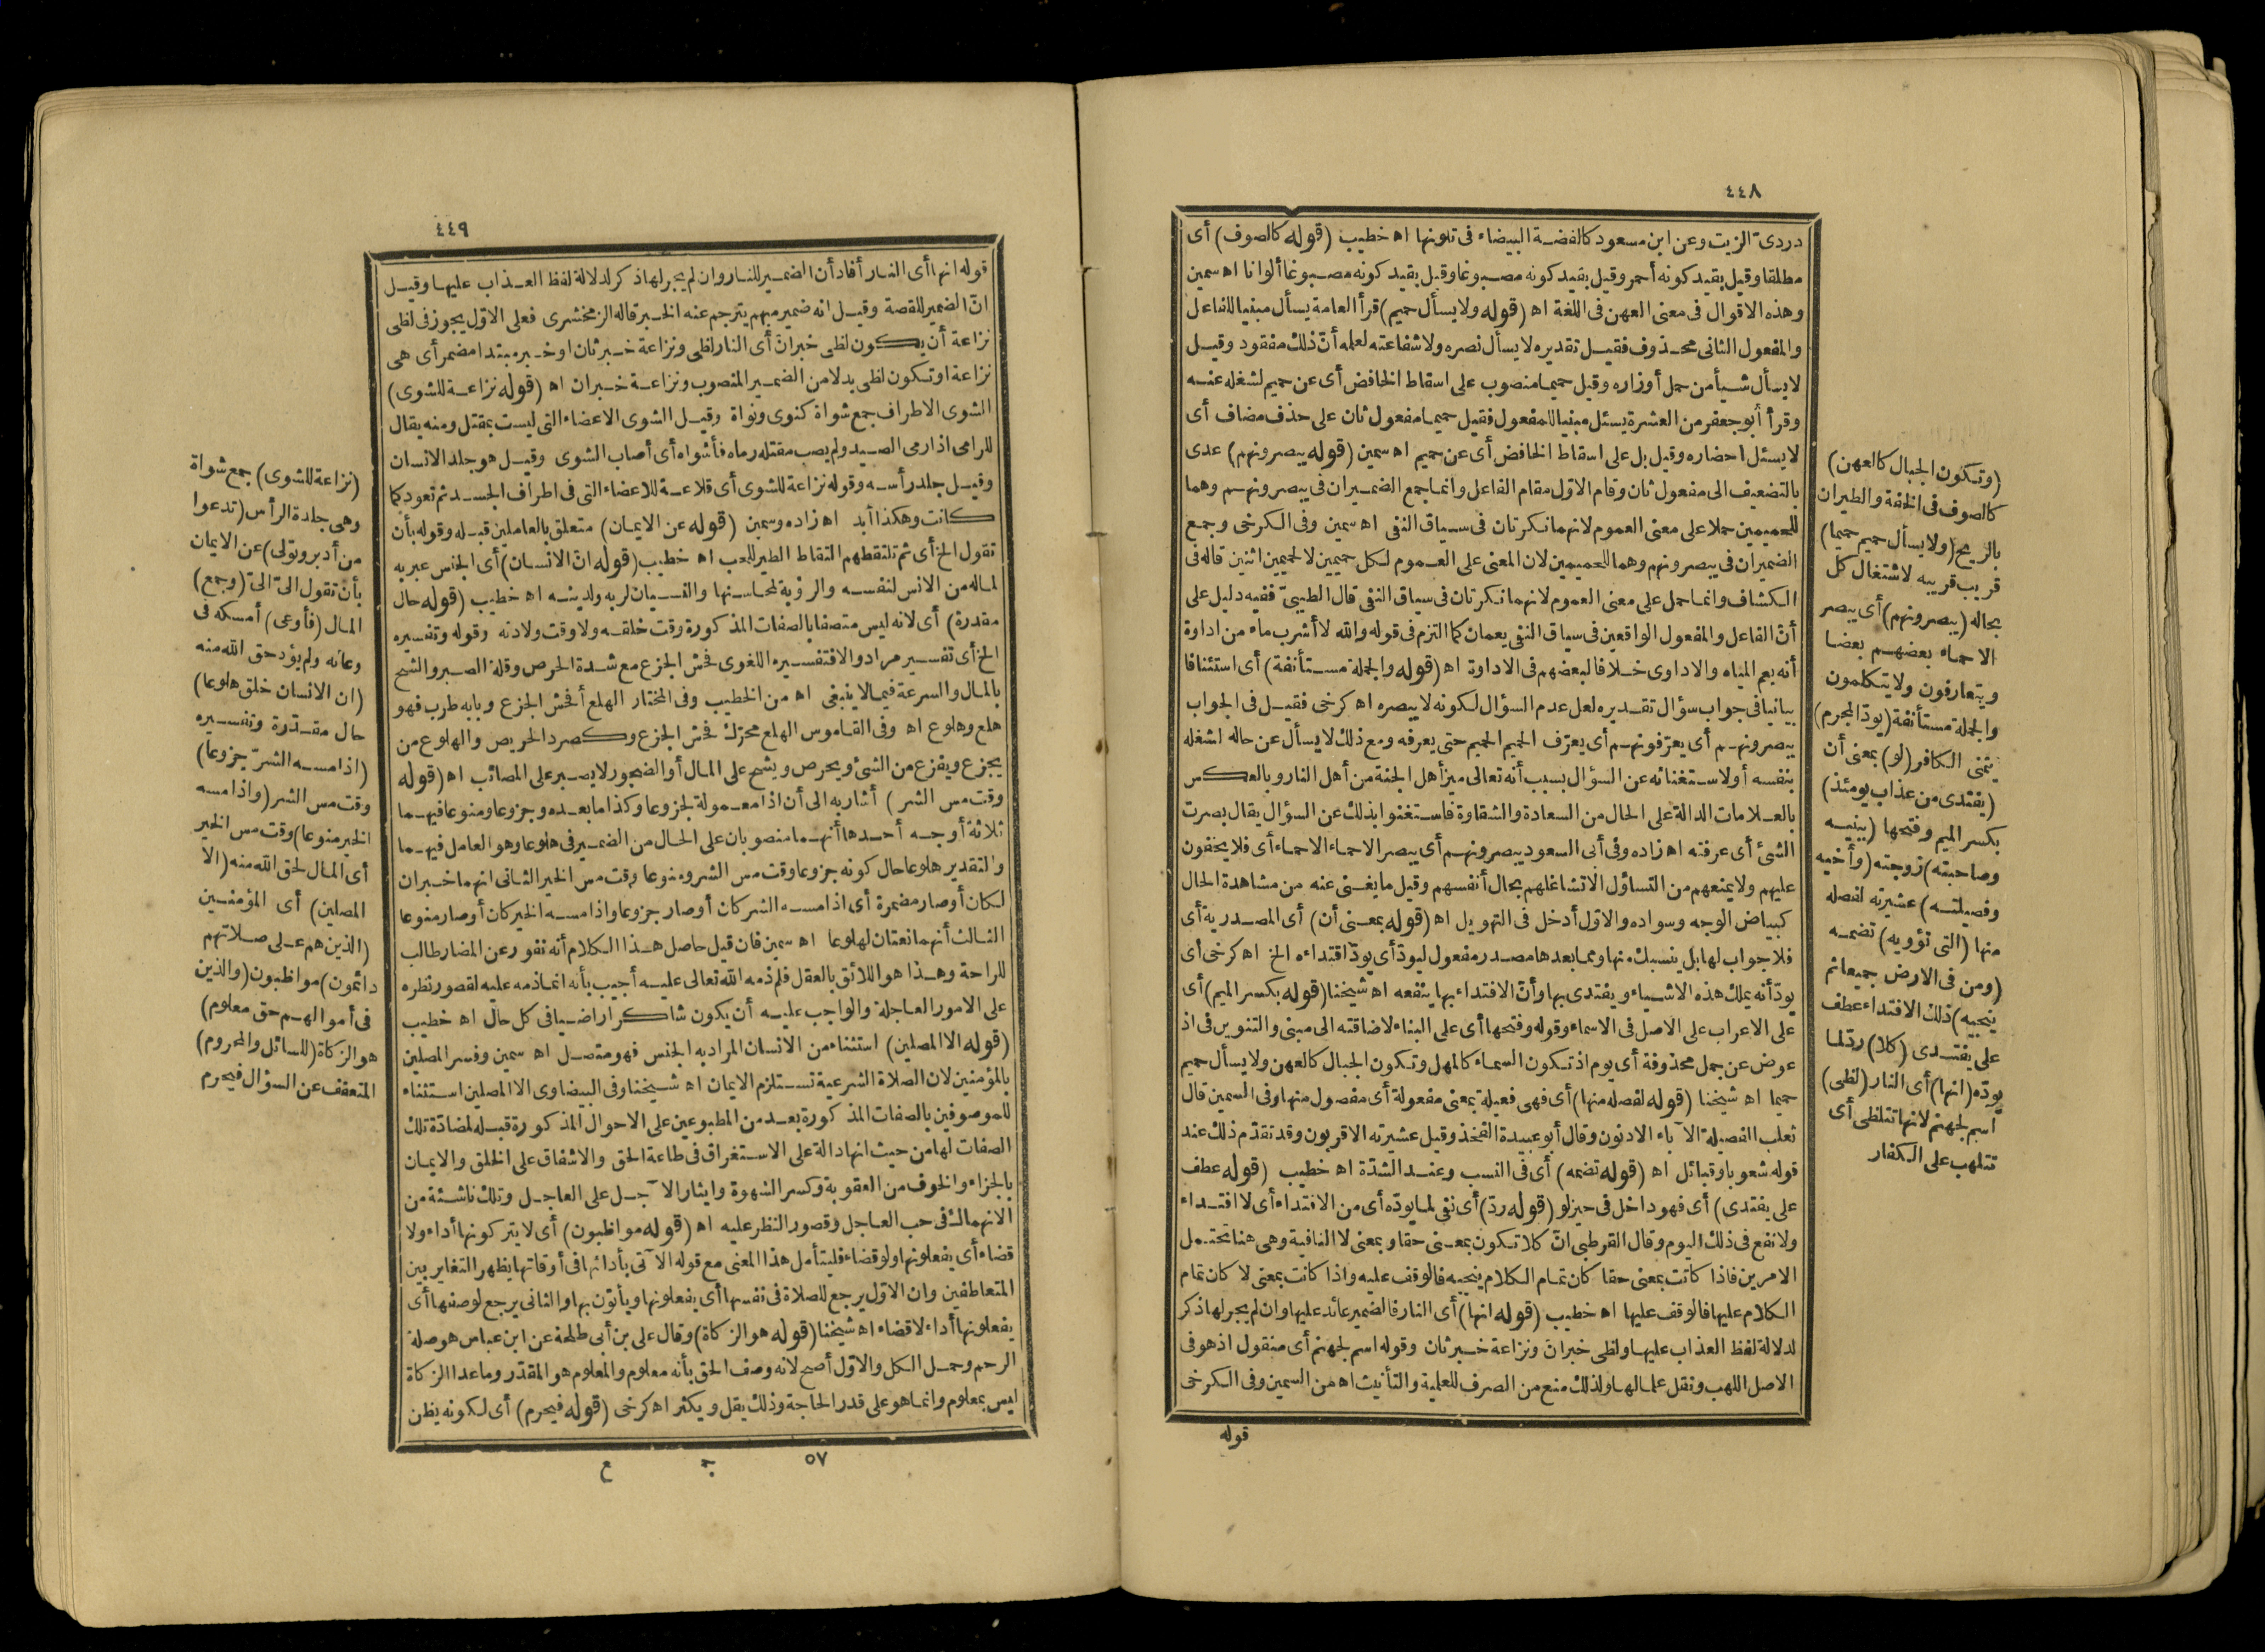 ٤٤٨
دردىّ الزيت وعن ابن مسعود كالفضة البيضاء فى تلونها اه خطيب (قوله كالصوف) أى
مطلقا وقيل بقيد كونه أحمر وقيل بقيد كونه مصبوغا وقيل بقيد كونه مصبوغا ألوانا اه سمين
وهذه الاقوال فى معنى العهن فى اللغة اه (قوله ولا يسأل حميم) قرأ العامة يسأل مبنيا للفاعل
والمفعول الثانى محذوف فقيل تقديره لا يسأل نصره ولا شفاعته لعلمه أنّ ذلك مفقود وقيل
لا يسأل شيأ من حمل أوزاره وقيل حميما منصوب على اسقاط الخافض أى عن حميم لشغله عنه
وقرأ أبو جعفر من العشرة يسئل مبنيا للمفعول فقيل حميما مفعول ثان على حذف مضاف أى
لا يسئل احضاره وقيل بل على اسقاط الخافض أى عن حميم اه سمين (قوله يبصرونهم) عدى
بالتضعيف الى مفعول ثان وقام الاوّل مقام الفاعل وانما جمع الضميران فى يبصرونهم وهما
للحميمين حملا على معنى العموم لانهما نكرتان فى سياق النفى اه سمين وفى الكرخى وجمع
الضميران فى يبصرونهم وهما للحميمين لان المعنى على العموم لكل حميمين لا لحميمين اثنين قاله فى
الكشاف وانما حمل على معنى العموم لانهما نكرتان فى سياق النفى قال الطيبىّ ففيه دليل على
أنّ الفاعل والمفعول الواقعين فى سياق النفى يعمان كما التزم فى قوله والله لا أشرب ماء من اداوة
أنه يعم المياه والاداوى خلافا لبعضهم فى الاداوة اه (قوله والجملة مستأنفة) أى استئنافا
بيانيا فى جواب سؤال تقديره لعل عدم السؤال لكونه لا يبصره اه كرخى فقيل فى الجواب
يبصرونهم أى يعرّفونهم أى يعرّف الحميم الحميم حتى يعرفه ومع ذلك لا يسأل عن حاله لشغله
بنفسه أولاستغنائه عن السؤال بسبب أنه تعالى ميز أهل الجنة من أهل النار وبالعكس
بالعلامات الدالة على الحال من السعادة والشقاوة فاستغنوا بذلك عن السؤال يقال بصرت
الشئ أى عرفته اه زاده وفى أبى السعود يبصرونهم أى يبصر الاحماء الاحماء أى فلا يخفون
عليهم ولا يمنعهم من التساؤل الا تشاغلهم بحال أنفسهم وقيل ما يغنى عنه من مشاهدة الحال
كبياض الوجه وسواده والاوّل أدخل فى التهويل اه (قوله بمعنى أن) أى المصدرية أى
فلا جواب لها بل ينسبك منها ومما بعدها مصدر مفعول ليودّ أى يودّ اقتداءه الخ اه كرخى أى
يودّ أنه يملك هذه الاشياء ويفتدى بها وأنّ الافتداء بها ينفعه اه شيخنا (قوله بكسر الميم) أى
على الاعراب على الاصل فى الاسماء وقوله وفتحها أى على البناء لاضافته الى مبنى والتنوين فى اذ
عوض عن جمل محذوفة أى يوم اذ تكون السماء كالمهل وتكون الجبال كالعهن ولا يسأل حميم
حميما اه شيخنا (قوله لفصله منها) أى فهى فعيلة بمعنى مفعولة أى مفصول منها وفى السمين قال
ثعلب الفصيلة الآباء الادنون وقال أبو عبيدة الفخذ وقيل عشيرته الاقربون وقد تقدّم ذلك عند
قوله شعوبا وقبائل اه (قوله تضمه) أى فى النسب وعند الشدّة اه خطيب (قوله عطف
على يفتدى) أى فهو داخل فى حيز لو (قوله ردّ) أى نفى لما يودّه أى من الافتداء أى لا افتداء
ولا نفع فى ذلك اليوم وقال القرطبى انّ كلا تكون بمعنى حقا وبمعنى لا النافية وهى هنا تحتمل
الامرين فاذا كانت بمعنى حقا كان تمام الكلام ينجيه فالوقف عليه واذا كانت بمعنى لا كان تمام
الكلام عليها فالوقف عليها اه خطيب (قوله انها) أى النار فالضمير عائد عليها وان لم يجر لها ذكر
لدلالة لفظ العذاب عليها ولظى خبرانّ ونزاعة خبر ثان وقوله اسم لجهنم أى منقول اذ هو فى
الاصل اللهب ونقل علما لها ولذلك منع من الصرف للعلمية والتأنيث اه من السمين وفى الكرخى
قوله
(وتكون الجبال كالعهن)
كالصوف فى الخفة والطيران
بالريح (ولا يسأل حميم حميما)
قريب قريبه لاشتغال كل
بحاله (يبصرونهم) أى يبصر
الاحماء بعضهم بعضا
ويتعارفون ولا يتكلمون
والجملة مستأنفة (يودّ المجرم)
يتمنى الكافر (لو) بمعنى أن
(يفتدى من عذاب يومئذ)
بكسر الميم وفتحها (ببنيه
وصاحبته) زوجته (وأخيه
وفصيلته) عشيرته لفصله
منها (التى تؤويه) تضمه
(ومن فى الارض جميعا ثم
ينجيه) ذلك الافتداء عطف
على يفتدى (كلا) ردّ لما
يودّه (انها) أى النار (لظى)
اسم لجهنم لانها تتلظى أى
تتلهب على الكفار
٤٤٩
قوله انها أى النار أفاد أن الضمير للنار وان لم يجر لها ذكر لدلالة لفظ العذاب عليها وقيل
انّ الضمير للقصة وقيل انه ضمير مبهم يترجم عنه الخبر قاله الزمخشرى فعلى الاوّل يجوز فى لظى
نزاعة أن يكون لظى خبرانّ أى النار لظى ونزاعة خبر ثان أو خبر مبتدا مضمر أى هى
نزاعة أو تكون لظى بدلا من الضمير المنصوب ونزاعة خبران اه (قوله نزاعة للشوى)
الشوى الاطراف جمع شواة كنوى ونواة وقيل الشوى الاعضاء التى ليست بمقتل ومنه يقال
للرامى اذا رمى الصيد ولم يصب مقتله رماه فأشواه أى أصاب الشوى وقيل هو جلد الانسان
وقيل جلد رأسه وقوله نزاعة للشوى أى قلاعة للاعضاء التى فى اطراف الجسد ثم تعود كما
كانت وهكذا أبد اه زاده وسمين (قوله عن الايمان) متعلق بالعاملين قبله وقوله بأن
تقول الخ أى ثم تلتقطهم التقاط الطير للحب اه خطيب (قوله انّ الانسان) أى الجنس عبر به
لماله من الانس لنفسه والرؤية لمحاسنها والنسيان لربه ولدينه اه خطيب (قوله حال
مقدرة) أى لانه ليس متصفا بالصفات المذكورة وقت خلقه ولا وقت ولادته وقوله وتفسيره
الخ أى تفسير مراد والا فتفسيره اللغوى فحش الجزع مع شدة الحرص وقلة الصبر والشح
بالمال والسرعة فيما لا ينبغى اه من الخطيب وفى المختار الهلع أفحش الجزع وبابه طرب فهو
هلع وهلوع اه وفى القاموس الهلع محرّك فحش الجزع وكصرد الحريص والهلوع من
يجزع ويفزع من الشئ ويحرص ويشح على المال أو الضجور لا يصبر على المصائب اه (قوله
وقت مس الشر) أشار به الى أن اذا معمولة لجزوعا وكذا ما بعده وجزوعا ومنوعا فيهما
ثلاثة أوجه أحدها أنهما منصوبان على الحال من الضمير فى هلوعا وهو العامل فيهما
والتقدير هلوعا حال كونه جزوعا وقت مس الشر ومنوعا وقت مس الخير الثانى انهما خبران
لكان أو صار مضمرة أى اذا مسه الشر كان أو صار جزوعا واذا مسه الخير كان أو صار منوعا
الثالث أنهما نعتان لهلوعا اه سمين فان قيل حاصل هذا الكلام أنه نفور عن المضار طالب
للراحة وهذا هو اللائق بالعقل فلم ذمه الله تعالى عليه أجيب بأنه انما ذمه عليه لقصور نظره
على الامور العاجلة والواجب عليه أن يكون شاكرا راضيا فى كل حال اه خطيب
(قوله الا المصلين) استثناء من الانسان المراد به الجنس فهو متصل اه سمين وفسر المصلين
بالمؤمنين لان الصلاة الشرعية تستلزم الايمان اه شيخنا وفى البيضاوى الا المصلين استثناء
للموصوفين بالصفات المذكورة بعد من المطبوعين على الاحوال المذكورة قبله لمضادّة تلك
الصفات لها من حيث انها دالة على الاستغراق فى طاعة الحق والاشفاق على الخلق والايمان
بالجزاء والخوف من العقوبة وكسر الشهوة وايثار الآجل على العاجل وتلك ناشئة من
الانهماك فى حب العاجل وقصور النظر عليه اه (قوله مواظبون) أى لا يتركونها أداء ولا
قضاء أى يفعلونها ولو قضاء فليتأمل هذا المعنى مع قوله الآتى بأدائها فى أوقاتها يظهر التغاير بين
المتعاطفين وان الاوّل يرجع للصلاة فى نفسها أى يفعلونها ويأتون بها والثانى يرجع لوصفها أى
يفعلونها أداء لا قضاء اه شيخنا (قوله هو الزكاة) وقال على بن أبى طلحة عن ابن عباس هو صلة
الرحم وحمل الكل والاوّل أصح لانه وصف الحق بأنه معلوم والمعلوم هو المقدّر وما عدا الزكاة
ليس بمعلوم وانما هو على قدر الحاجة وذلك يقل ويكثر اه كرخى (قوله فيحرم) أى لكونه يظن
(نزاعة للشوى) جمع شواة
وهى جلدة الرأس (تدعوا
من أدبر وتولى) عن الايمان
بأن تقول الىّ الىّ (وجمع)
المال (فأوعى) أمسكه فى
وعائه ولم يؤد حق الله منه
(ان الانسان خلق هلوعا)
حال مقدّرة وتفسيره
(اذا مسه الشرّ جزوعا)
وقت مس الشر (واذا مسه
الخير منوعا) وقت مس الخير
أى المال لحق الله منه (الا
المصلين) أى المؤمنين
(الذين هم على صلاتهم
دائمون) مواظبون (والذين
فى أموالهم حق معلوم)
هو الزكاة (للسائل والمحروم)
المتعفف عن السؤال فيحرم
٥٧ ج ع